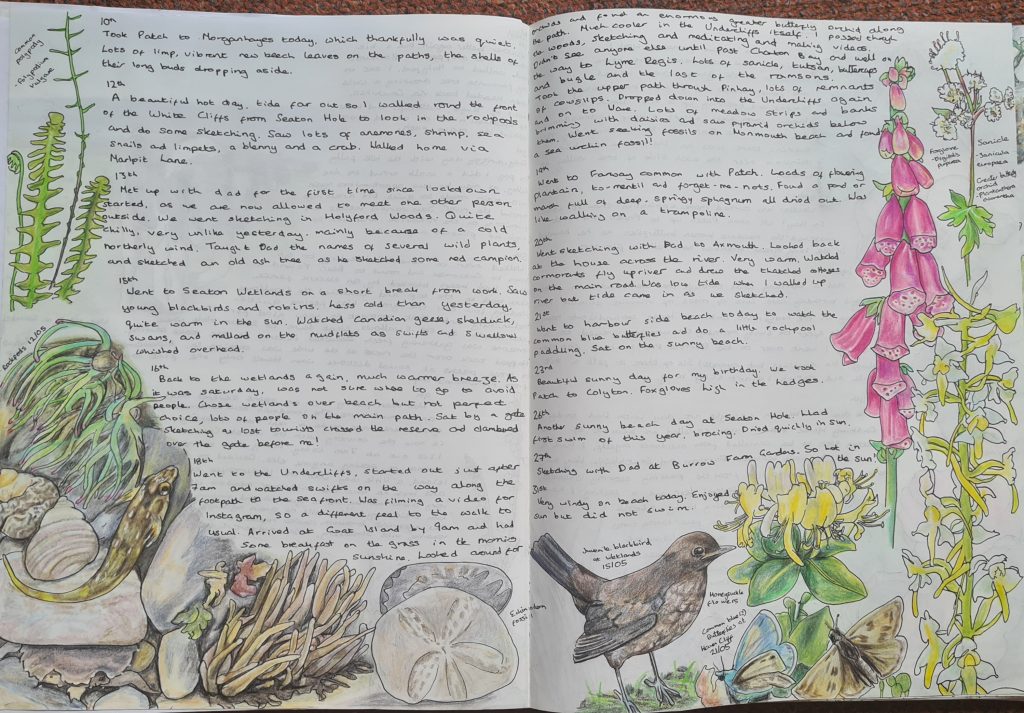 10th
Took Patch to Morganhayes today, which thankfully was quiet.
Lots of limp, vibrant new beech leaves on the paths, the shells of
their long buds dropping aside.
12th
A beautiful hot day, tide far out so I walked round the front
of the White Cliffs from Seaton Hole to look in the rockpools
and do some sketching. Saw lots of anemones, shrimp, sea
snails and limpets, a blenny and a crab. Walked home via
Marlpit Lane.
13th
Met up with dad for the first time since lockdown
started, as we are now allowed to meet one other person
outside. We went sketching in Holyford Woods. Quite
chilly, very unlike yesterday, mainly because of a cold
northerly wind. Taught Dad the names of several wild plants,
and sketched an old ash tree as he sketched some red campion.
15th
Went to Seaton Wetlands on a short break from work. Saw
young blackbirds and robins. Less cold than yesterday,
quite warm in the sun. Watched Canadian geese, shelduck,
swans, and mallard on the mudflats as swifts and swallows
whished overhead.
16th
Back to the wetlands again, much warmer breeze. As
it was saturday, was not sure where to go to avoid
people. Chose wetlands over beach but not perfect
choice, lots of people on the main path. Sat by a gate
sketching as lost tourists crossed the reserve and clambered
over the gate before me!
18th
Went to the Undercliffs, started out just after
7am and watched swifts on the way along the
footpath to the seafront. Was filming a video for
Instagram, so a different feel to the walk to
usual. Arrived at Goat Island by 9am and had
some breakfast on the grass in the morning
sunshine. Looked around for
Common polypody
- Polypodium vulgare
Rockpools 12/05
Echinoderm fossil
orchids and found an enormous greater butterfly orchid along
the path. Much cooler in the Undercliffs itself. I passed through
the woods, sketching and meditating and making videos.
Didn't see anyone else until past Charton Bay and well on
the way to Lyme Regis. Lots of sanicle, tutsan, buttercups
and bugle and the last of the ramsons.
Took the upper path through Pinhay, lots of remnants
of cowslips. Dropped down into the Undercliffs again
and on to Ware. Lots of meadow strips and banks
brimming with daisies and saw pyramid orchids below
them. Went seeking fossils on Monmouth beach and found
a sea urchin fossil!
19th
Went to Farway common with Patch. Loads of flowering
plantain, tormentil and forget-me-nots. Found a pond or
marsh full of deep, springy sphagnum all dried out. Was
like walking on a trampoline.
20th
Went sketching with Dad to Axmouth. Looked back
at the house across the river. Very warm. Watched
cormorants fly upriver and drew the thatched cottages
on the main road. Was low tide when I walked up
river but tide came in as we sketched.
21st
Went to harbour side beach today to watch the
common blue butterflies and do a little rockpool
paddling. Sat on the sunny beach.
23rd
Beautiful sunny day for my birthday. We took
Patch to Colyton. Foxgloves high in the hedges.
26th
Another sunny beach day at Seaton Hole. Had
first swim of this year, bracing. Dried quickly in sun.
27th
Sketching with Dad at Burrow Farm Gardens. So hot in
the sun!
31st
Very windy on beach today. Enjoyed
sun but did not swim.
Juvenile blackbird
at wetlands
15/05
Honeysuckle
flowers
Common blue (2)
Butterflies at
Haven Cliff
21/05
Foxglove
- Digitalis
purpurea
Sanicle
- Sanicula
europaea
Greater butterfly
orchid